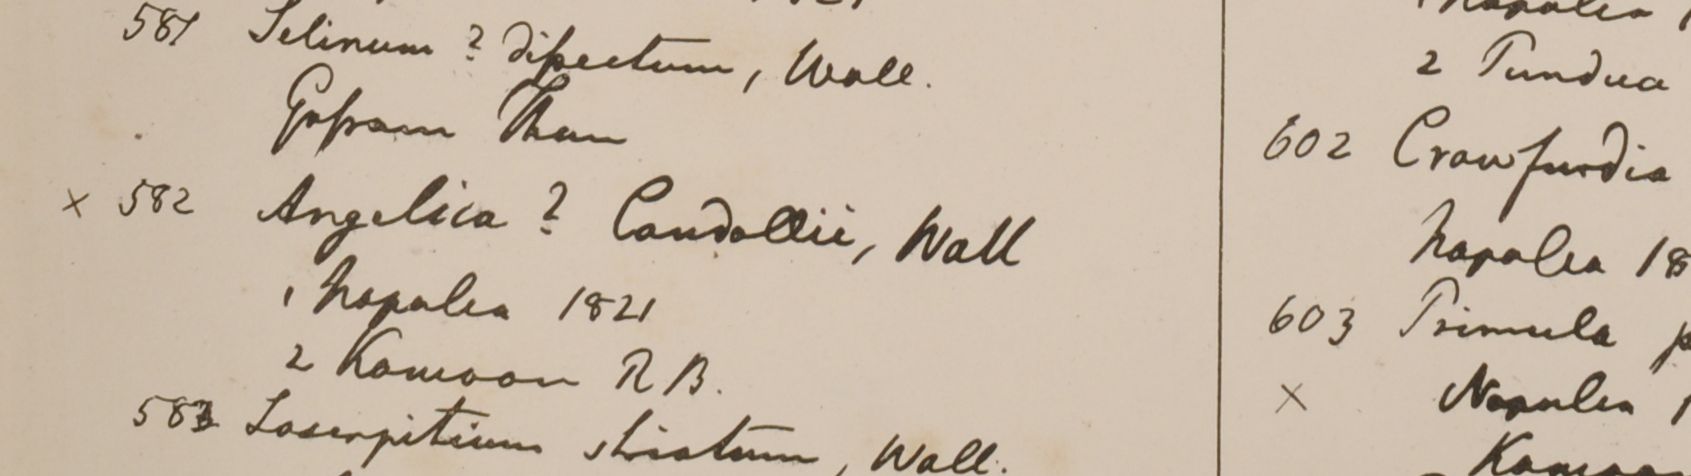 581 Selinum ? dissectum, Wall.
Gossam Than
x 582 Angelica ? Candollii, Wall
1 Napalia 1821
2 Kamoon R B.
583 Laserpitium striatum, Wall.
2 Pundua
602 Crawfurdia
Napalia 18
603 Primula p
x Napalia 1
Kamoon